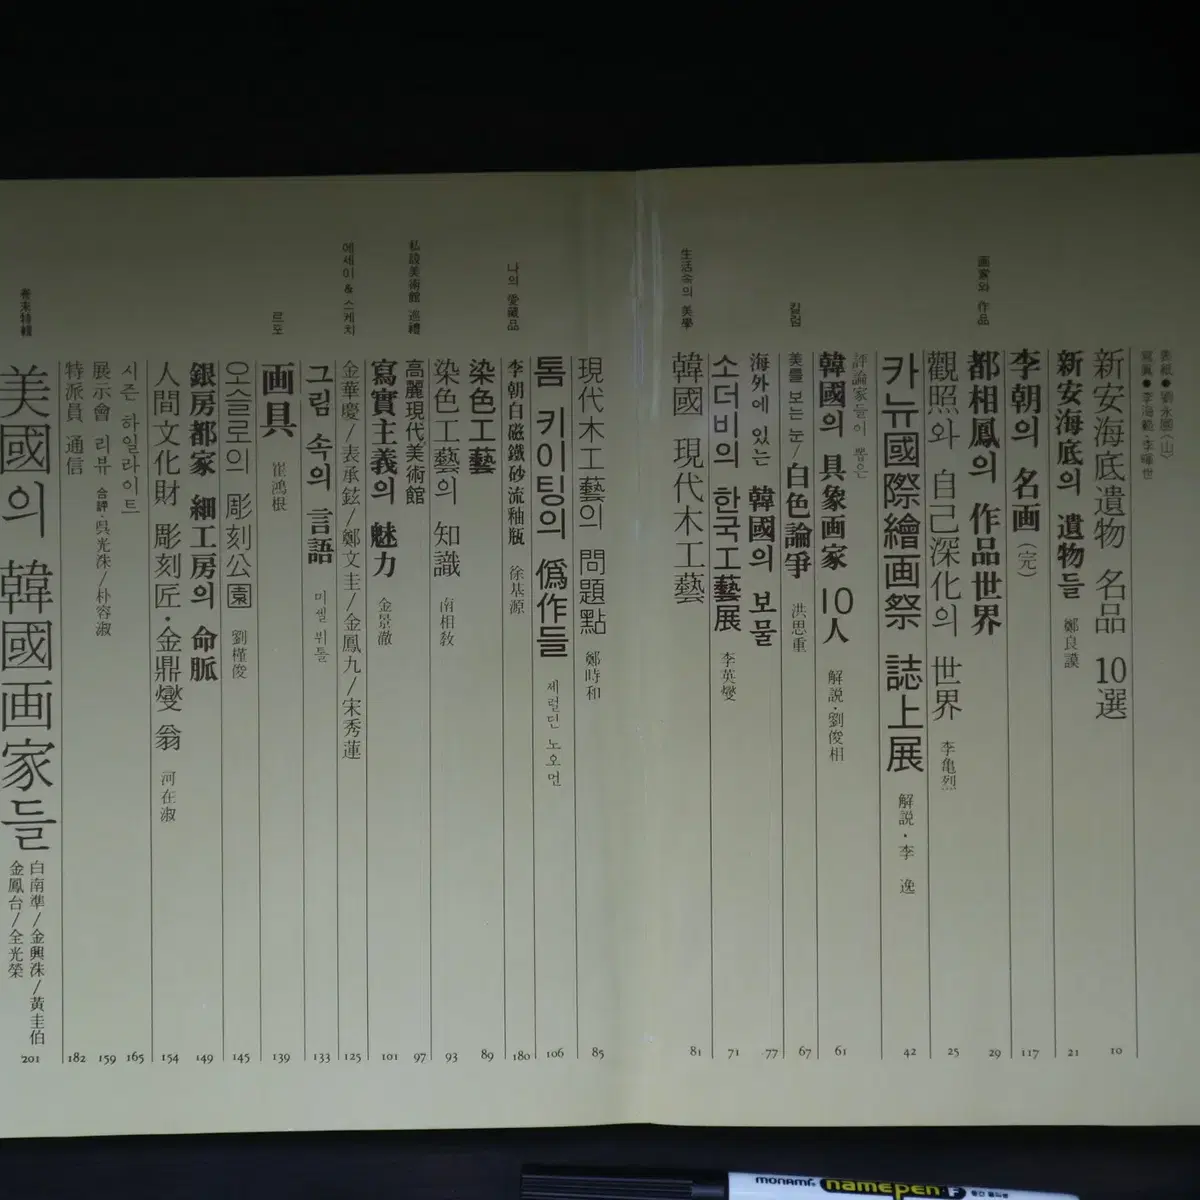 表紙●劉永國〈山〉
寫眞●李海範·李曄世
新安海底遺物 名品 10選
10
新安海底의 遺物들 鄭良謨
21
李朝의 名画(完)
117
画家와 作品
都相鳳의 作品世界
29
觀照와 自己深化의 世界 李亀烈
25
카뉴國際繪画祭 誌上展 解説·李 逸
42
評論家들이 뽑은
韓國의 具象画家 10人 解説·劉俊相
61
칼럼
美를 보는 눈/白色論爭 洪思重
67
海外에 있는 韓國의 보물
77
소더비의 한국工藝展 李英燮
71
生活속의 美學
韓國 現代木工藝
81
現代木工藝의 問題點 鄭時和
85
톰 키이팅의 僞作들 제럴딘 노오먼
106
나의 愛藏品
李朝白磁鐵砂流釉瓶 徐基源
180
染色工藝
89
染色工藝의 知識 南相敎
93
私設美術館 巡禮
高麗現代美術館
97
寫實主義의 魅力 金景澈
101
에세이 & 스케치
金華慶/表承鉉/鄭文圭/金鳳九/宋秀蓮
125
그림 속의 言語 미셸 뷔톨
133
르포
画具 崔鴻根
139
오슬로의 彫刻公園 劉槿俊
145
銀房都家 細工房의 命脈
149
人間文化財 彫刻匠·金鼎燮 翁 河在淑
154
시즌 하일라이트
165
展示會 리뷰 合評·吳光洙/朴容淑
159
特派員 通信
182
卷末特輯
美國의 韓國画家들
白南準/金興洙/黃圭伯
金鳳台/全光榮
201
monami namepen F